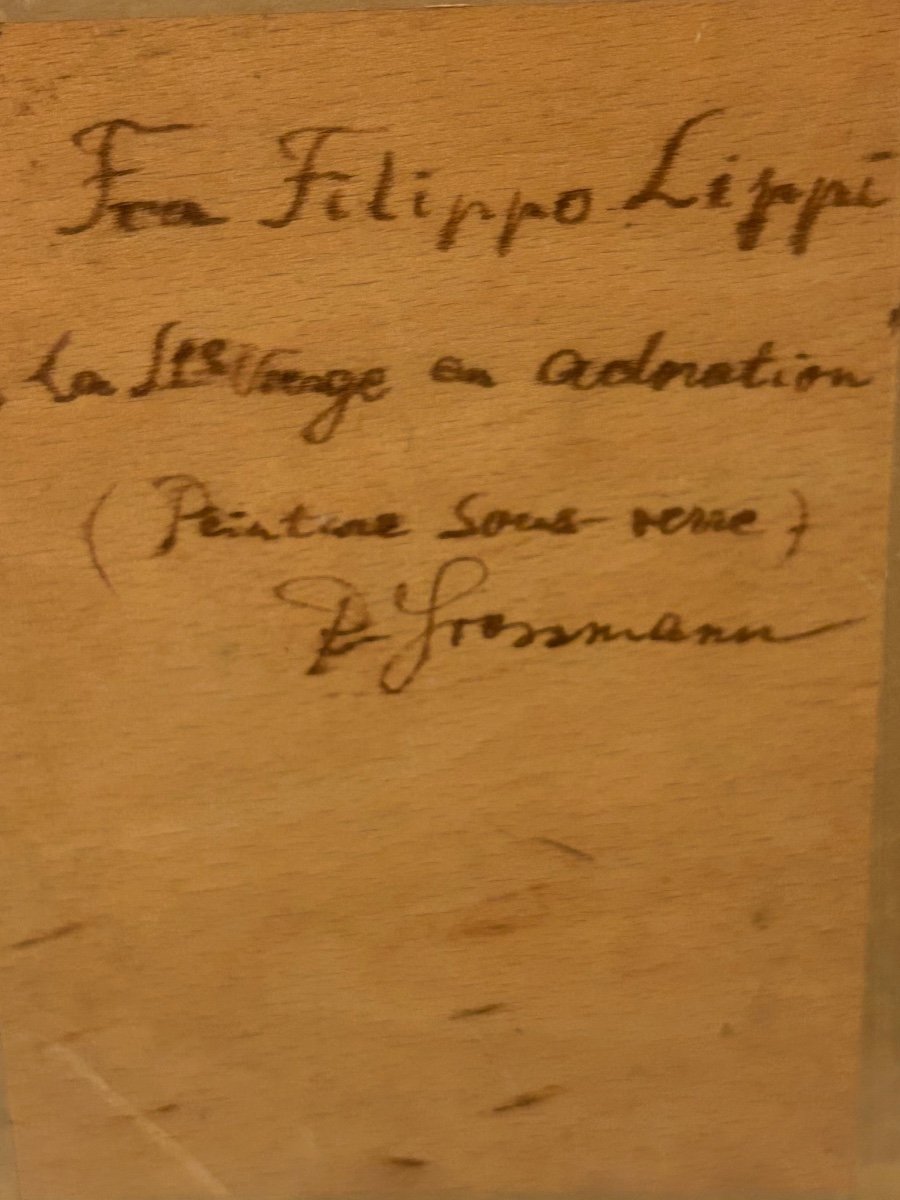 Fra Filippo Lippi
„La Ste Vierge en adoration"
(Peinture sous-verre)
P. Grossmann